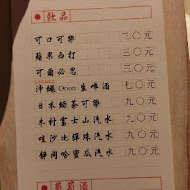 飲品
可口可樂 三〇元
蘋果西打 三〇元
可爾必思 三〇元
沖繩 Orion 生啤酒 七〇元
日本綠茶可樂 九〇元
木村富士山汽水 九〇元
哇沙比彈珠汽水 九〇元
靜岡哈蜜瓜汽水 九〇元
葡萄酒